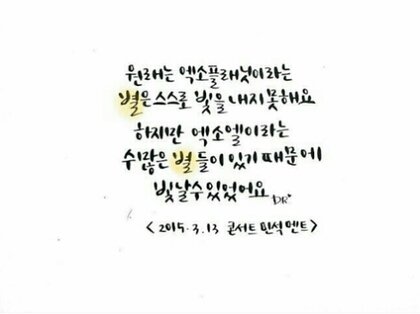 원래는 엑소플래닛이라는
별은 스스로 빛을 내지 못해요
하지만 엑소엘이라는
수많은 별들이 있기 때문에
빛날 수 있었어요 DR*
<2015.3.13 콘서트 민석 멘트>